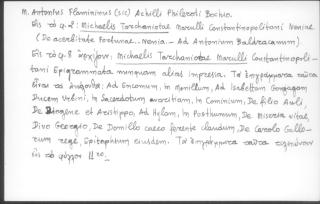 M. Antonius Flaminimus (sic) Achilli Philerotì Bochio.
Εἰς τὸ φ. 2: Michaelis Tarchaniotae Marulli Constantinopolitani Neniae
(De acerbitate Fortunae.. Nenia.– Ad Antonium Baldracanum).
Εἰς τὸ φ. 8 ἄρχονται: Michaelis Tarchaniotae Marulli Constantinopoli-
tani Epigrammata nunquam alias impressa. Τὰ ἐπιγράμματα ταῦτα
εἶναι τὰ ἀκόλουθα: Ad Encomum, in Monillum, Ad Isabellam Gonzagam
Ducem Urbini, In Sacerdotum avaritiam, In Cominium, De filio Auli,
De Diogene et Aristippo, Ad Hylam, In Posthumum, De miseria vitae,
Divo Georgio, De Domillo caeco ferente claudum, De Carolo Gallo-
rum rege, Epitaphium eiusdem. Τὰ ἐπιγράμματα ταῦτα
εἰς τὸ φύλλον 11ro.